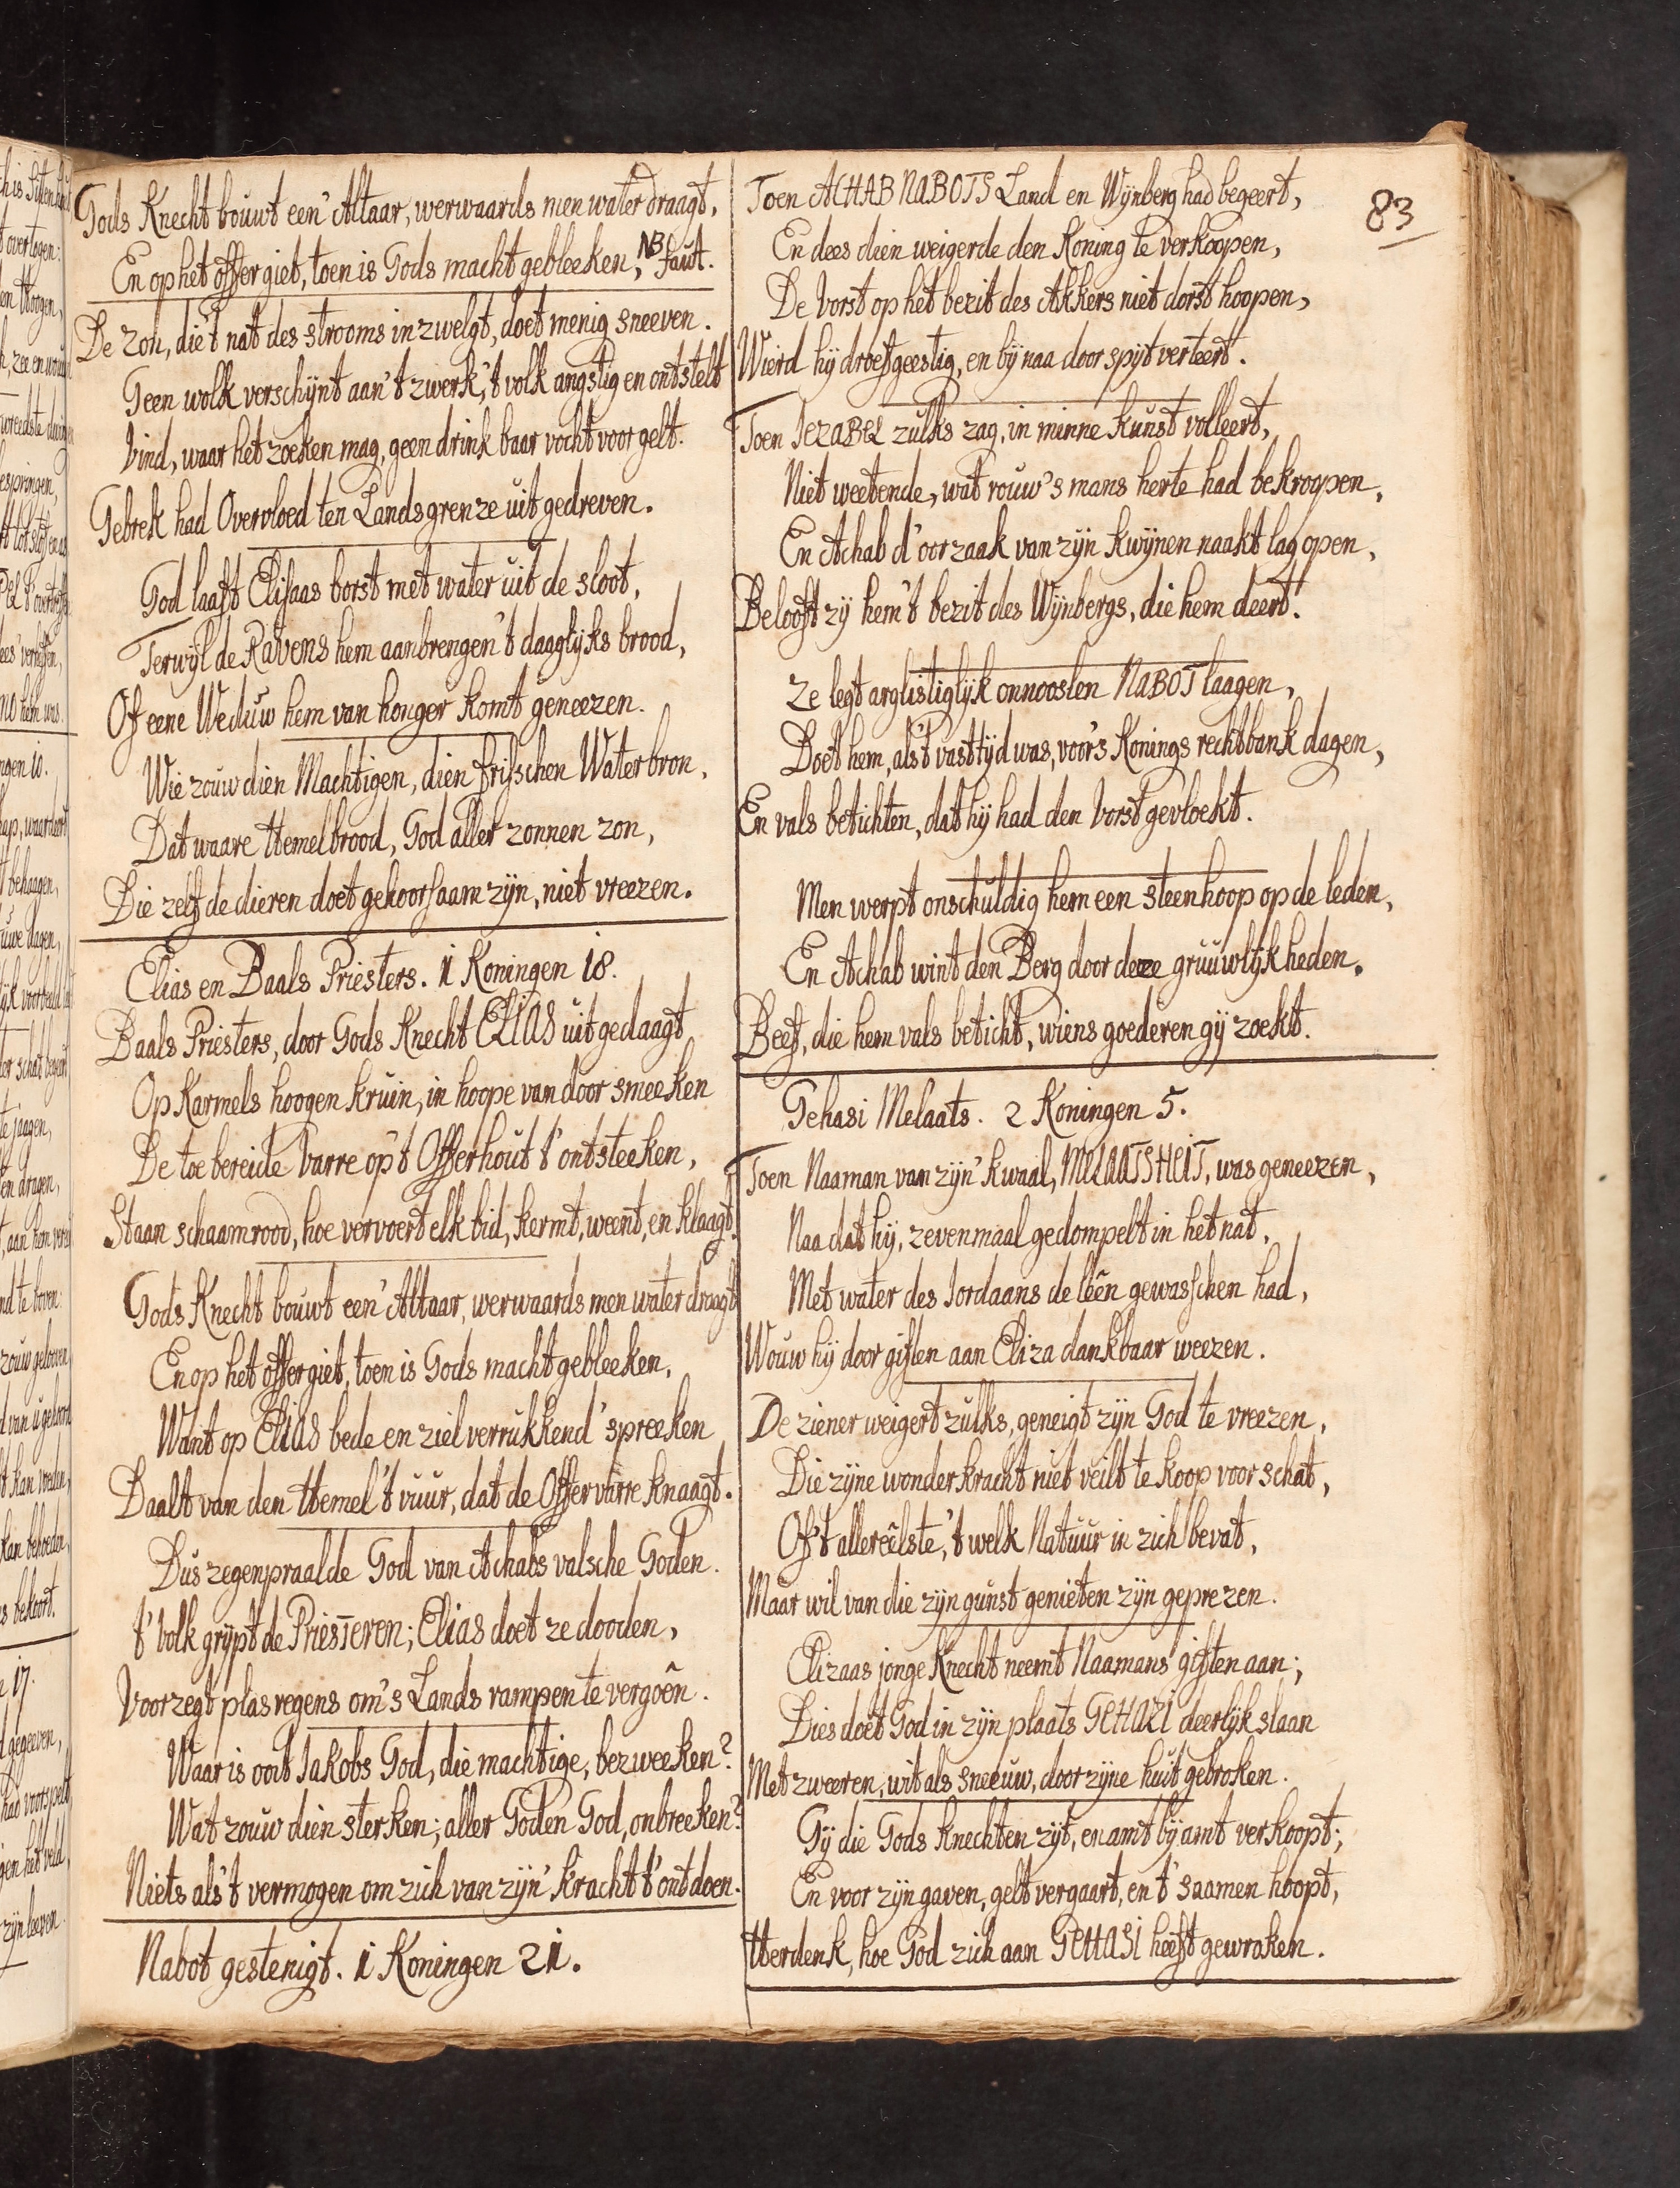 83
Gods Knecht bouwt een' Altaar, werwaards men water draagt,
En op het offer giet, toen is Gods macht gebleeken, NB faut.
De zon, die 't nat des strooms inzwelgt, doet menig sneeven.
Geen wolk verschijnt aan 't zwerk, 't volk angstig en ontstelt
Vind, waar het zoeken mag, geen drinkbaar vocht voor gelt.
Gebrek had Overvloed ten Landsgrenze uit gedreven.
God laaft Elisaas borst met water uit de sloot,
Terwijl de Ravens hem aanbrengen 't daaglijks brood,
Of eene Weduw hem van honger komt geneezen.
Wie zouw dien Machtigen, dien frisschen Waterbron,
Dat waare Hemelbrood, God aller zonnen zon,
Die zelfs de dieren doet gehoorsaam zijn, niet vreezen.
Elias en Baals Priesters. 1 Koningen 18.
Baals Priesters, door Gods Knecht ELIAS uitgedaagt
Op Karmels hoogen kruin, in hoope van door smeeken
De toebereide Varre op 't Offerhout t' ontsteeken,
Staan schaamrood, hoe vervoert elk bid, kermt, weent, en klaagt.
Gods Knecht bouwt een' Altaar, werwaards men water draagt
En op het offer giet, toen is Gods macht gebleeken,
Want op ELIAS bede en zielverrukkend' spreeken
Daalt van den Hemel 't vuur, dat de Offervarre knaagt.
Dus zegenpraalde God van Achabs valsche Goden.
't Volk grijpt de Priesteren; Elias doet ze dooden,
Voorzegt plasregens om 's Lands rampen te vergoên.
Waar is ooit Jakobs God, die machtige, bezweeken?
Wat zouw dien sterken; aller Goden God, onbreeken?
Niets als 't vermogen om zich van zijn' kracht t' ontdoen.
Nabot gestenigt. 1 Koningen 21.
Toen ACHAB NABOTS Land en Wijnberg had begeert,
En dees dien weigerde den Koning te verkoopen,
De Vorst op het bezit des Akkers niet dorst hoopen,
Wierd hij droefgeestig, en bij naa door spijt verteert.
Toen JEZABEL zulks zag, in minne kunst volleert,
Niet weetende, wat rouw 's mans herte had bekroopen,
En Achab d' oorzaak van zijn kwijnen naakt lag open,
Belooft zij hem 't bezit des Wijnbergs, die hem deert.
Ze legt arglistiglijk onnooslen NABOT laagen,
Doet hem, als 't vasttijd was, voor 's Konings rechtbank dagen,
En vals betichten, dat hij had den Vorst gevloekt.
Men werpt onschuldig hem een steenhoop op de leden,
En Achab wint den Berg door deze gruuwlijkheden.
Beef, die hem vals beticht, wiens goederen gij zoekt.
Gehasi Melaats. 2 Koningen 5.
Toen Naaman van zijn' kwaal, MELAATSHEIT, was geneezen,
Naa dat hij, zevenmaal gedompelt in het nat,
Met water des Jordaans de leên gewasschen had,
Wouw hij door giften aan Eliza dankbaar weezen.
De ziener weigert zulks, geneigt zijn God te vreezen,
Die zijne wonderkracht niet veilt te koop voor schat,
Of 't allereêlste, 't welk Natuur in zich bevat,
Maar wil van die zijn gunst genieten zijn geprezen.
Elizaas jonge Knecht neemt Naamans' giften aan;
Dies doet God in zijn plaats GEHAZI deerlijk slaan
Met zweeren, wit als sneeuw, door zijne huit gebroken.
Gij die Gods Knechten zijt, en amt bij amt verkoopt;
En voor zijn gaven, gelt vergaart, en t' saamen hoopt,
Herdenk, hoe God zich aan GEHASI heeft gewroken.